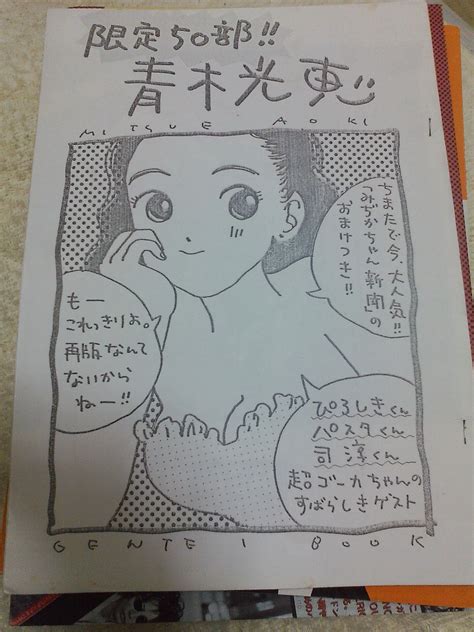 限定50部!!
青木光恵
MITSUE AOKI
ちまたで今、大人気!!
「みぢかちゃん新聞」の
おまけつき!!
もー
これっきりよ。
再版なんて
ないから
ねー!!
ぴろしきくん
パスタくん
司淳くん
超ゴーカちゃんの
すばらしきゲスト
GENTEI BOOK